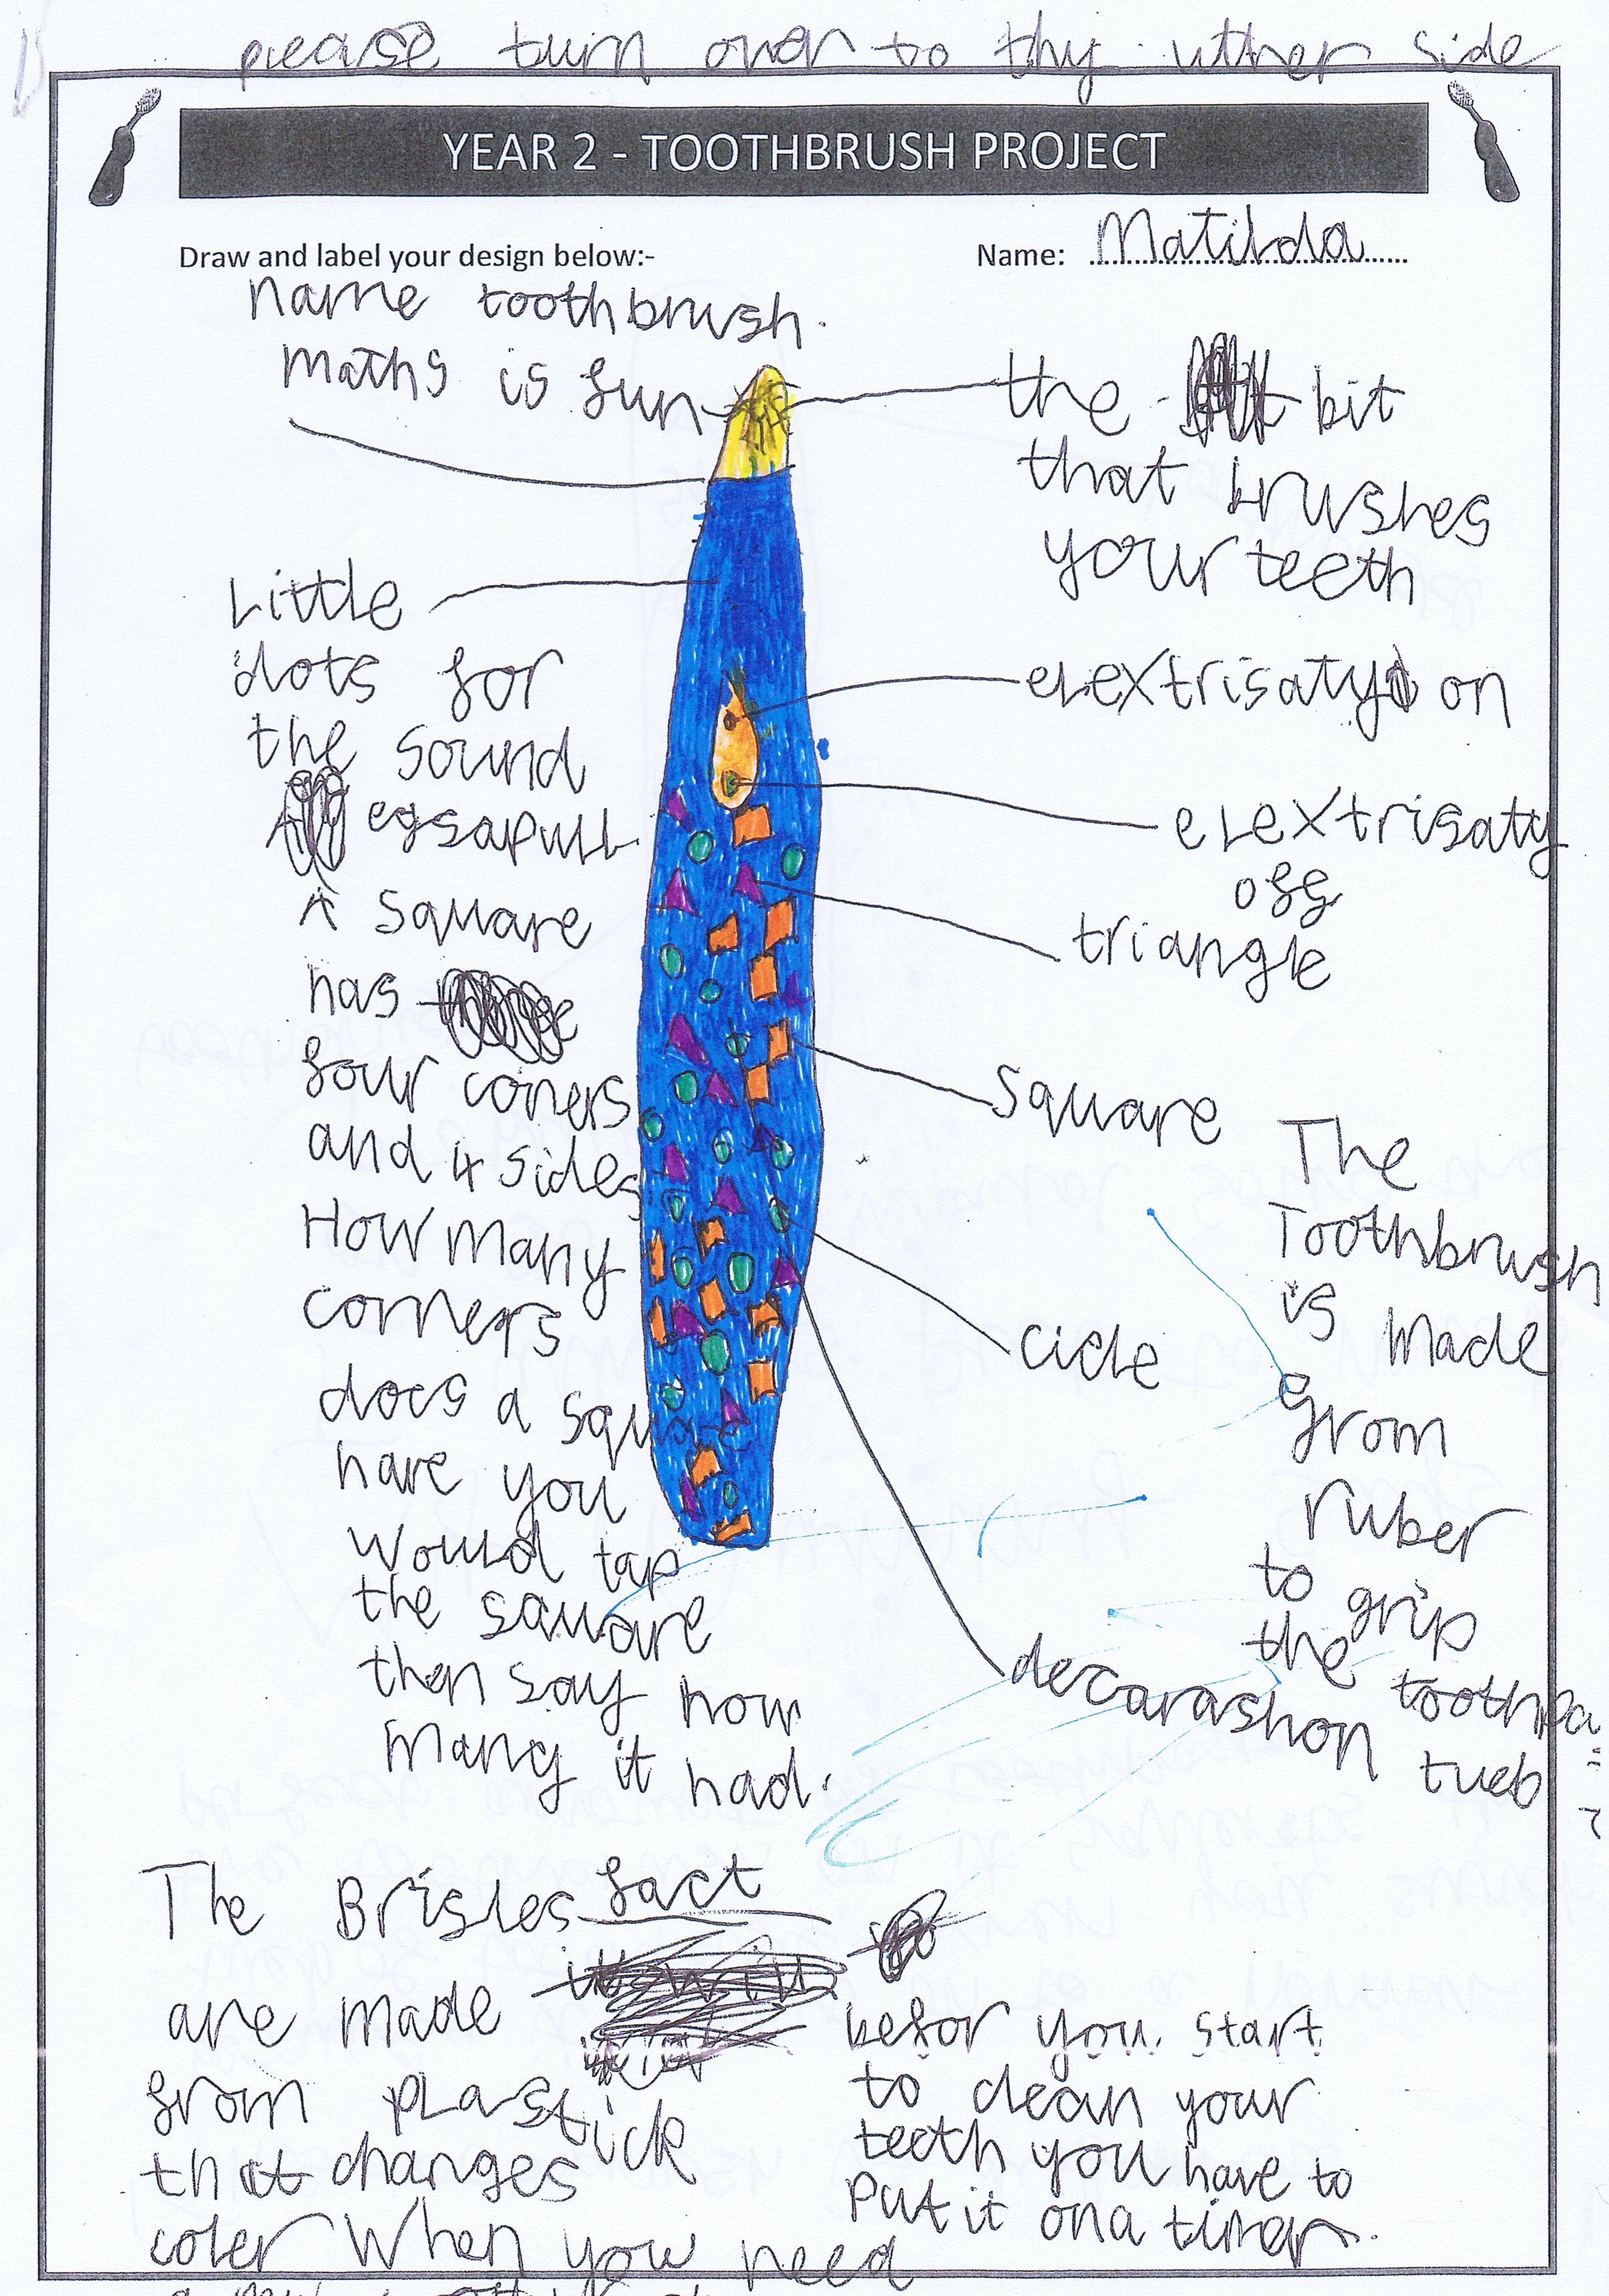 please turn over to thy uther side
YEAR 2 - TOOTHBRUSH PROJECT
Draw and label your design below:-
Name: Matilda
name toothbrush.
maths is fun
the bit
that brushes
your teeth
Little
dots for
the sound
egsapull
A square
has
four coners
and 4 sides
How many
corners
does a squ
have you
would tap
the square
then say how
many it had.
elextrisaty on
elextrisaty
off
triangle
square
cicle
decarashon
The
Toothbrush
is made
from
ruber
to grip
the toothpa
tueb
The Brisles
are made
from plastick
that changes
coler when you need
fact
befor you start
to clean your
teeth you have to
put it on a timer.